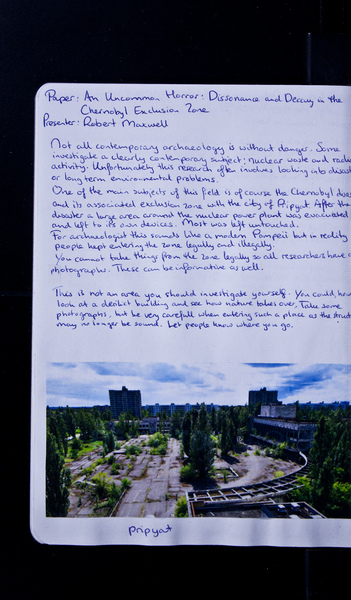 Paper: An Uncommon Horror: Dissonance and Decay in the
Chernobyl Exclusion Zone
Presenter: Robert Maxwell
Not all contemporary archaeology is without danger. Some
investigate a clearly contemporary subject; nuclear waste and
activity. Unfortunately this research often involves looking into
or long term environmental problems.
One of the main subjects of this field is of course the Chernobyl
and its associated exclusion zone with the city of Pripyat. After the
disaster a large area around the nuclear power plant was evacuated
and left to its own devices. Most was left untouched.
For archaeologist this sounds like a modern Pompeii but in reality
people kept entering the zone legally and illegally.
You cannot take things from the zone legally so all researchers have
photographs. These can be informative as well.
This is not an area you should investigate yourself. You could, how
look at a derelict building and see how nature takes over. Take some
photographs, but be very carefull when entering such a place as the
may no longer be sound. Let people know where you go.
pripyat